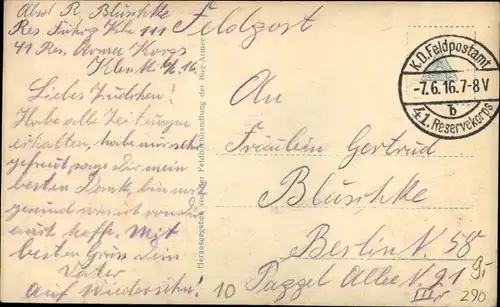 Abs. R. Bluschke
Res Fuhrp. Kln 111
41 Res. Armee Korps
6/6 16.
Feldpost
K.D. Feldpostamt
-7.6.16. 7-8 V
b
41. Reservekorps
Liebes Trudchen!
Habe alle Zeitungen
erhalten, habe mir sehr
gefreut, sage Dir mein
besten Dank, bin
gesund was ich von Dir
auch hoffe. Mit
besten Grüs Dein
Vater
Auf Wiedersehn!
Herausgegeben von der Feldbuchhandlung der Bug-Armee
An
Fräulein Gertrud
Bluschke
Berlin N. 58
Pappel Allee N. 21
III Tr
10
9,-
290